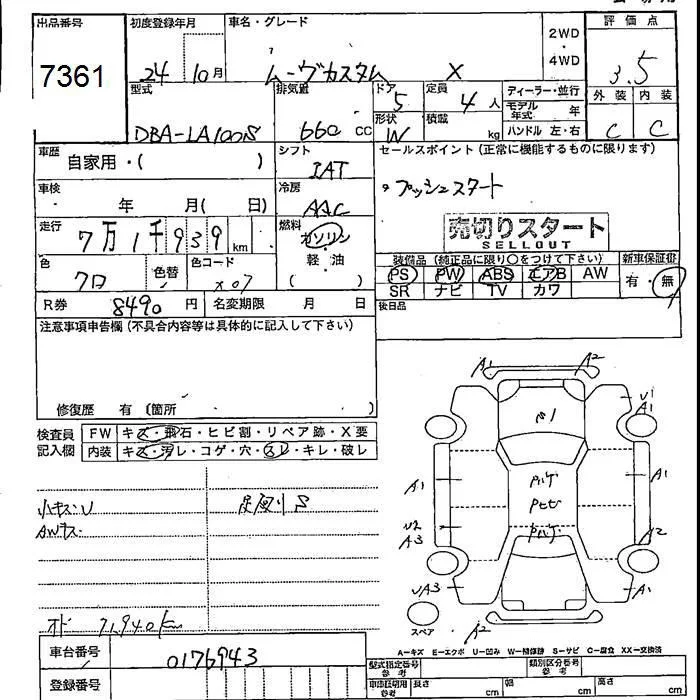 出品番号
7361
初度登録年月
24 10月
車名・グレード
ムーヴカスタム X
2WD
・
4WD
評価点
3.5
型式
DBA-LA100S
排気量
660 CC
ドア
5
形状
W
定員
4人
積載
kg
ディーラー・並行
モデル年式 年
ハンドル 左・右
外装 内装
C C
車歴
自家用・( )
シフト
IAT
車検
年 月( 日)
冷房
AAC
走行
7万1千939km
燃料
ガソリン
軽・油
( )
色
クロ
色替
色コード
X07
R券 8490円
名変期限 月 日
セールスポイント(正常に機能するものに限ります)
プッシュスタート
売切りスタート
SELLOUT
装備品(純正品に限り○をつけて下さい)
PS PW ABS エアB AW
SR ナビ TV カワ
新車保証書
有・無
後日品
注意事項申告欄(不具合内容等は具体的に記入して下さい)
修復歴 有(箇所 )
検査員記入欄
FW キズ・飛石・ヒビ割・リペア跡・X要
内装 キズ・汚レ・コゲ・穴・スレ・キレ・破レ
小キズU
AWキズ
足廻りS
オド 71,940km
車台番号 0176943
登録番号
A1 A2
U1
A1
A1
A1
U2
A3
A2
UA3
A1
A2
スペア
A-キズ E-エクボ U-凹み W-補修跡 S-サビ C-腐食 XX-交換済
型式指定番号 参考
類別区分番号 参考
長さ cm 幅 cm 高さ cm